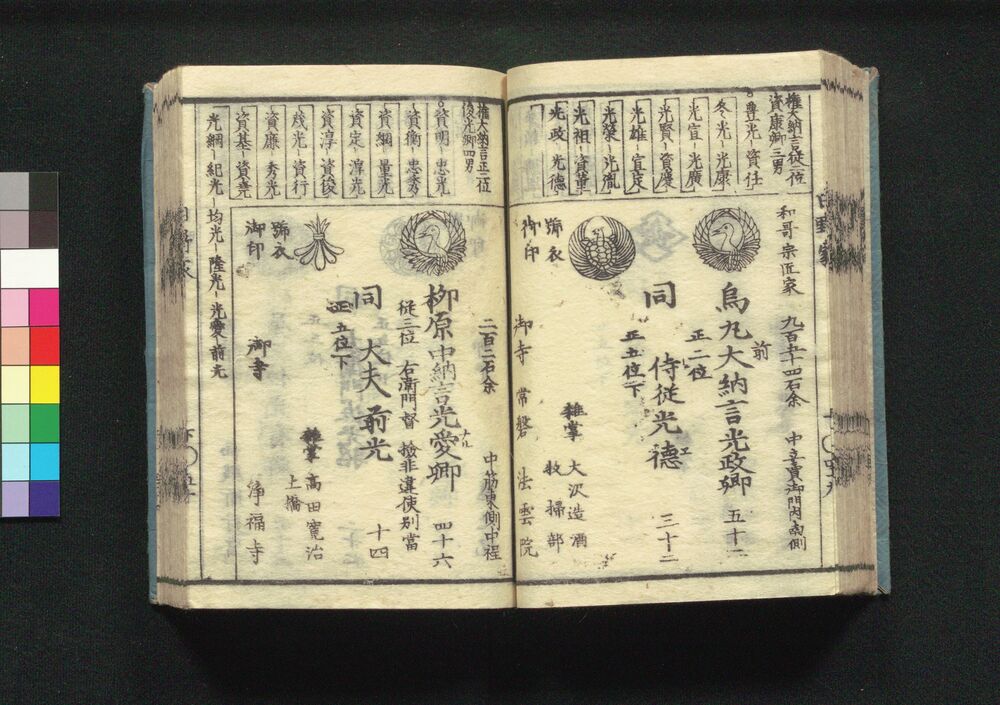 権大納言従一位
資康卿三男
豊光-資任
冬光-光康
光宣-光廣
光賢-資慶
光雄-宣定
光榮-光胤
光祖-資董
光政-光徳
和哥宗匠家 九百五十四石余 中立賣御門内南側
烏丸前大納言光政卿 五十二
正二位
同 侍従光徳 三十二
正五位下
雑掌 大沢造酒
牧掃部
號衣
御印
御寺 常磐 法雲院
権大納言正二位
俊光卿四男
資明-忠光
資衡-忠秀
資綱-量光
資定-淳光
資淳-資俊
茂光-資行
資廉-秀光
資基-資堯
光綱-紀光-均光-隆光-光愛-前光
二百二石余 中筋東側中程
柳原中納言光愛卿 四十六
ナル
従三位 右衛門督 検非違使別當
同 大夫前光 十四
正五位下
雑掌 高田寛治
土橋
號衣
御印
御寺 浄福寺